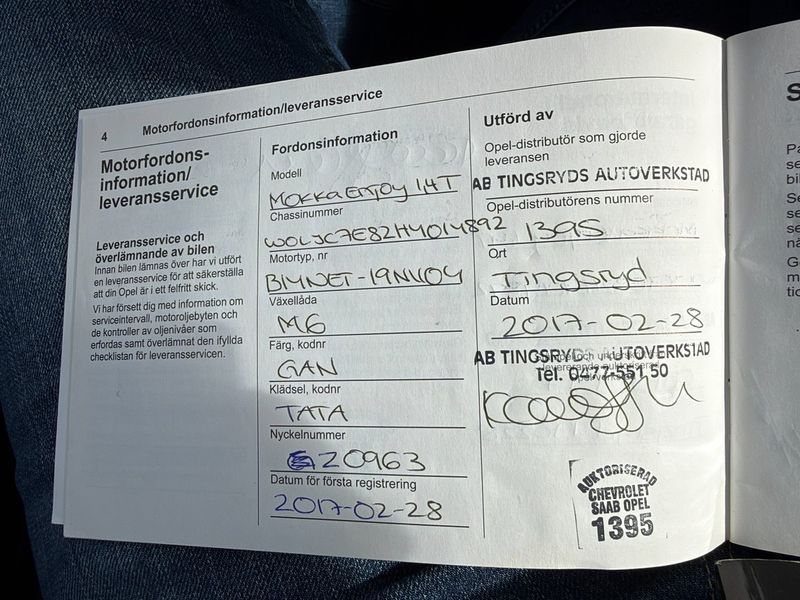 4 Motorfordonsinformation/leveransservice
Motorfordons-
information/
leveransservice
Leveransservice och
överlämnande av bilen
Innan bilen lämnas över har vi utfört
en leveransservice för att säkerställa
att din Opel är i ett felfritt skick.
Vi har försett dig med information om
serviceintervall, motoroljebyten och
de kontroller av oljenivåer som
erfordras samt överlämnat den ifyllda
checklistan för leveransservicen.
Fordonsinformation
Modell
Mokka Enjoy 1,4T
Chassinummer
W0LJC7E82HY014892
Motortyp, nr
Växellåda
M6
Färg, kodnr
GAN
Klädsel, kodnr
TATA
Nyckelnummer
Z0963
Datum för första registrering
2017-02-28
Utförd av
Opel-distributör som gjorde
leveransen
AB TINGSRYDS AUTOVERKSTAD
Opel-distributörens nummer
1395
Ort
Tingsryd
Datum
2017-02-28
AB TINGSRYDS AUTOVERKSTAD
Tel. 0477-551 50
AUKTORISERAD
CHEVROLET
SAAB OPEL
1395